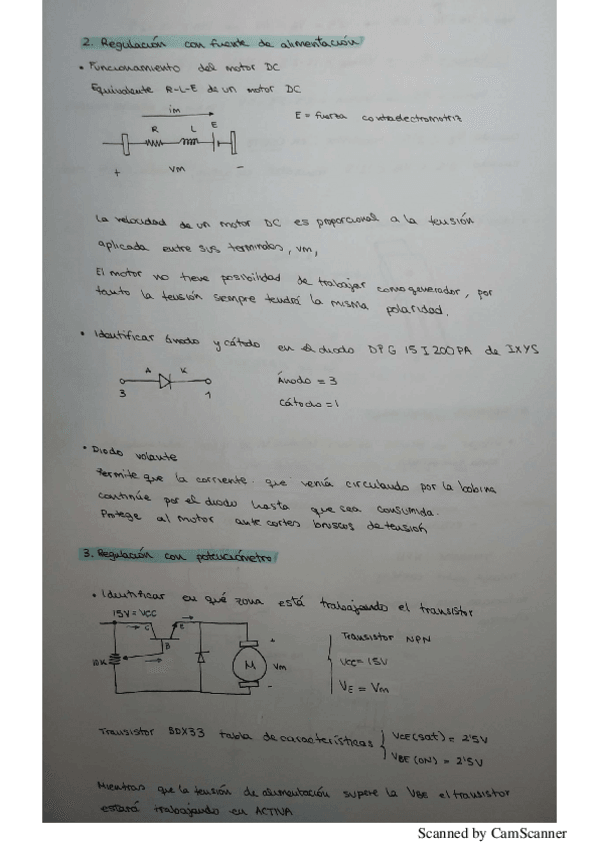 2. Regulación con fuente de alimentación
• Funcionamiento del motor DC
Equivalente R-L-E de un motor DC
im
R L E
E = fuerza contraelectromotriz
+ Vm -
La velocidad de un motor DC es proporcional a la tensión
aplicada entre sus terminales, vm,
El motor no tiene posibilidad de trabajar como generador, por
tanto la tensión siempre tendrá la misma polaridad.
• Identificar ánodo y cátodo en el diodo DPG 15 I 200PA de IXYS
A K
3 1
Ánodo = 3
Cátodo = 1
• Diodo volante
Permite que la corriente que venía circulando por la bobina
continúe por el diodo hasta que sea consumida.
Protege al motor ante cortes bruscos de tensión
3. Regulación con potenciómetro
• Identificar en qué zona está trabajando el transistor
15V = VCC
C E
B
10K
M
+
Vm
-
Transistor NPN
VCC = 15V
VE = Vm
Transistor BDX33 tabla de características
VCE (sat) = 2'5V
VBE (ON) = 2'5V
Mientras que la tensión de alimentación supere la VBE el transistor
estará trabajando en ACTIVA
Scanned by CamScanner